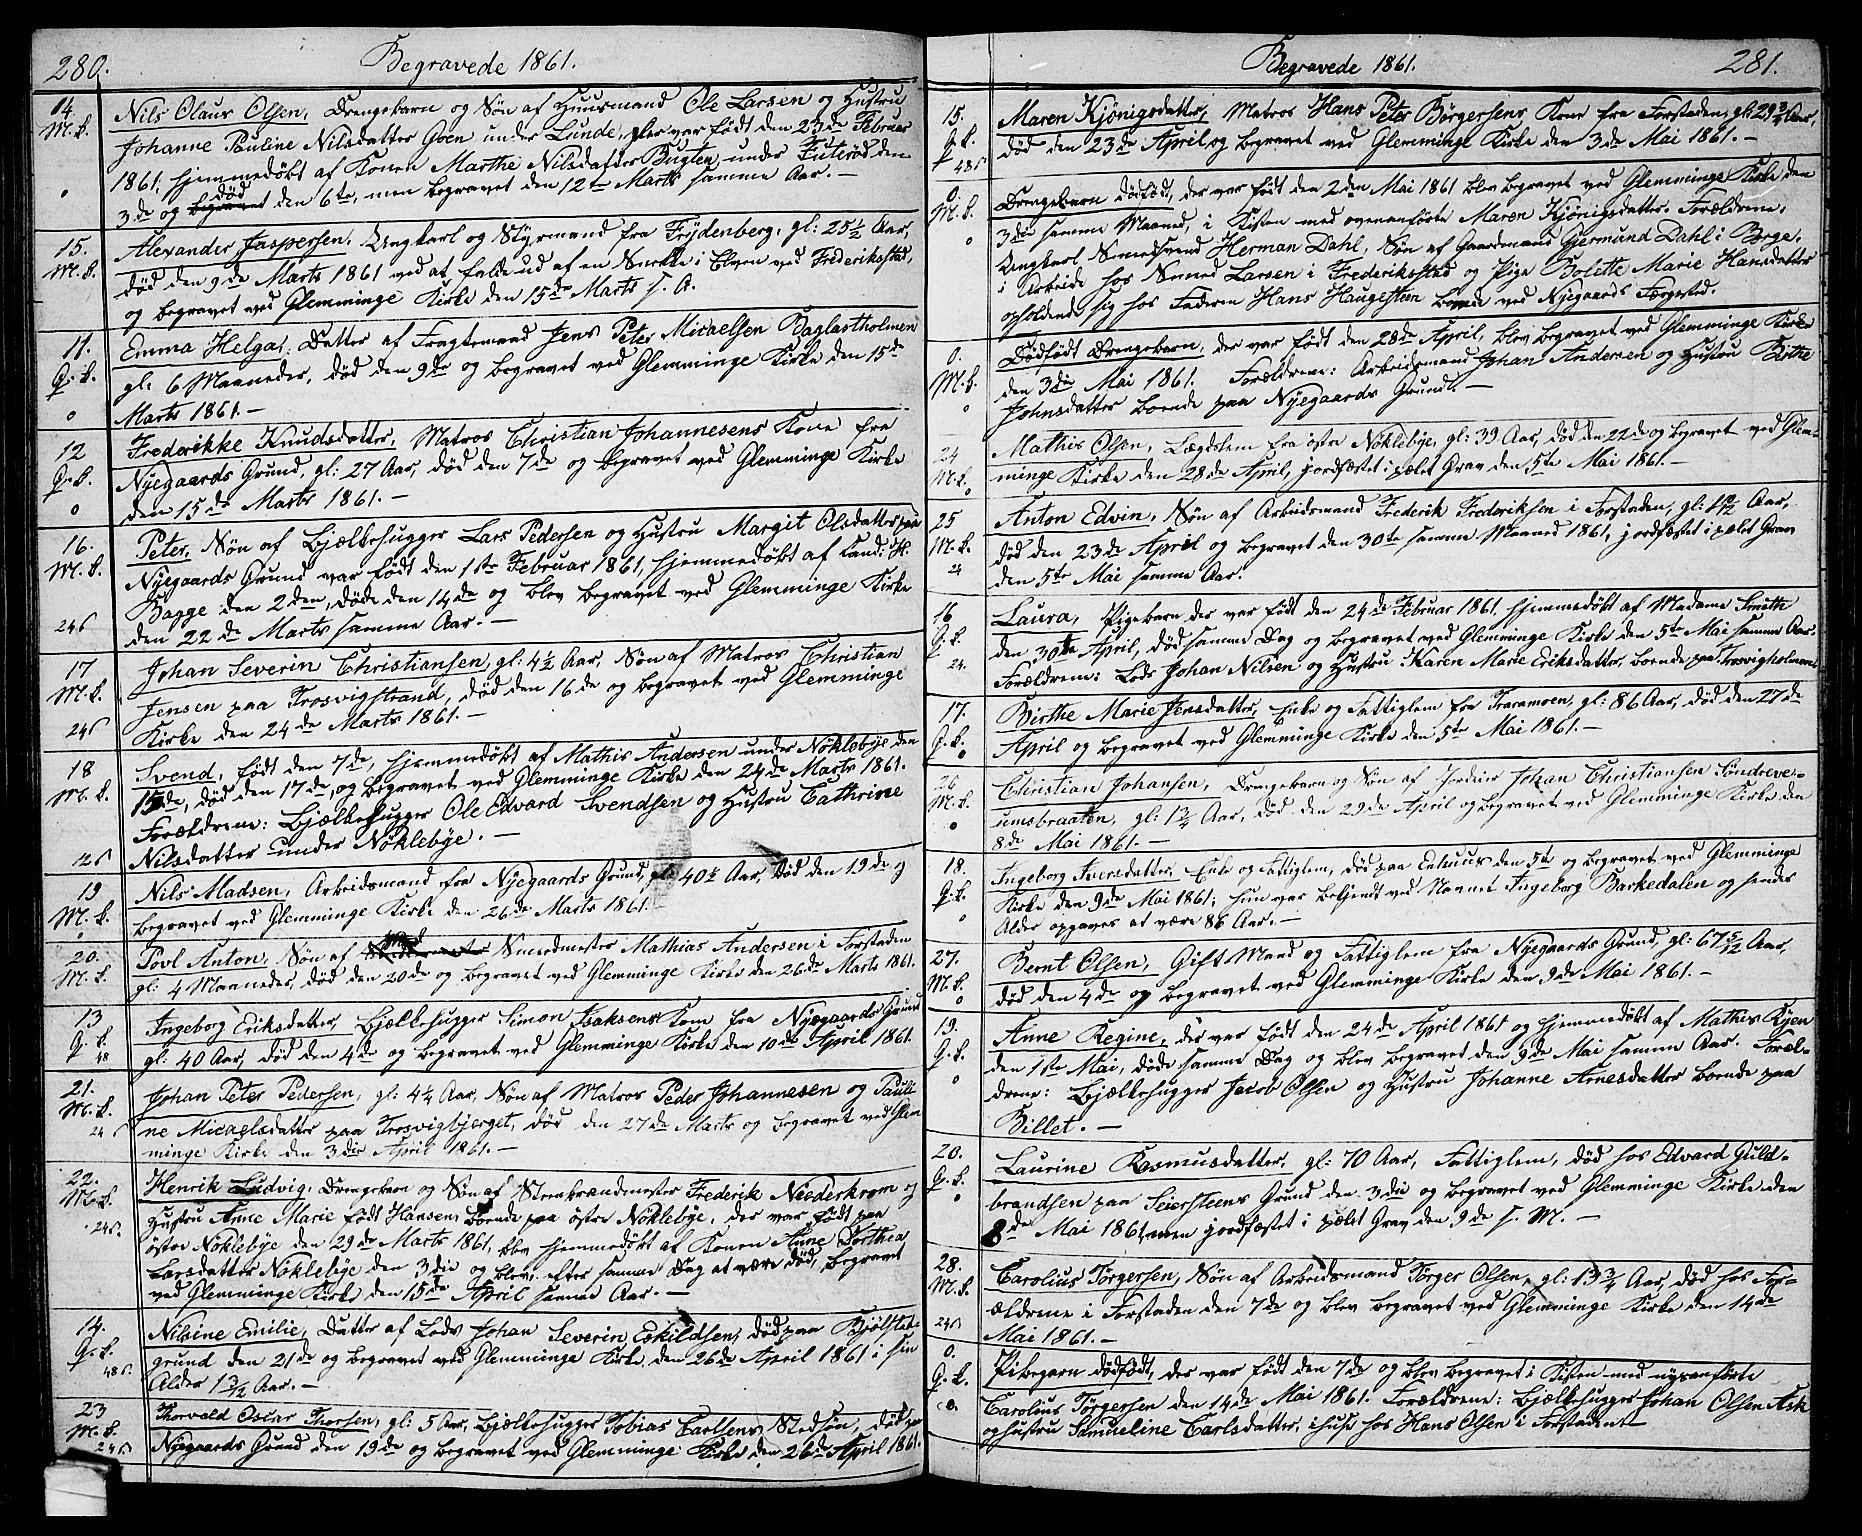 280.
Begravede 1861.
14. M.k. Nils Olaus Olsen, Drengebarn og Søn af Huusmand Ole Larsen og Hustru
Johanne Pauline Nilsdatter Goen under Lunde, der var født den 23de Februar
1861, hjemmedøbt af Konen Marthe Nilsdatter Bugten under Futerød den
0 3de og død begravet den 6te, men begravet den 12te Marts samme Aar. —
15. M.k. Alexander Jaspersen, Ungkarl og Styrmand fra Frydenberg, gl: 25½ Aar,
død den 9de Marts 1861 ved at falde ud af en Snekke i Elven ved Frederiksstad,
og begravet ved Glemminge Kirke den 15de Marts s. A.
11. Q.k. Emma Helga, Datter af Fragtemand Jens Peter Micaelsen Baglastholmen
gl: 6 Maaneder, død den 9de og begravet ved Glemminge Kirke den 15de
0 Marts 1861. —
12 Q.k. Frederikke Knudsdatter, Matros Christian Johannesens Kone fra
Nyegaards Grund, gl: 27 Aar, død den 7de og begravet ved Glemminge Kirke
0 den 15de Marts 1861. —
16. M.k. Peter, Søn af Bjælkehugger Lars Pedersen og Hustru Margit Olsdatter paa
Nyegaards Grund var født den 1ste Februar 1861, hjemmedøbt af Cand: H.
Bagge den 2den, døde den 14de og blev begravet ved Glemminge Kirke
24s den 22de Marts samme Aar. —
17 M.k. Johan Severin Christiansen, gl: 4½ Aar, Søn af Matros Christian
Jensen paa Trosvigstrand, død den 16de og begravet ved Glemminge
24s Kirke den 24de Marts 1861. —
18 M.k. Svend, født den 7de, hjemmedøbt af Mathis Andersen under Nøklebye den
15de, død den 17de, og begravet ved Glemminge Kirke den 24de Marts 1861.
Forældrene: Bjælkehugger Ole Edvard Svendsen og Hustru Cathrine
12s Nilsdatter under Nøklebye. —
19 M.k. Nils Madsen, Arbeidsmand fra Nyegaards Grund, gl: 40½ Aar, død den 19de og
0 begravet ved Glemminge Kirke den 26de Marts 1861.
20. M.k. Povl Anton, Søn af Smedmester Mathias Andersen i Forstaden
gl: 4 Maaneder, død den 20de og begravet ved Glemminge Kirke den 26de Marts 1861.
13 Q.k. Ingeborg Eriksdatter, Bjælkehugger Simon Isaksens Kone fra Nyegaards Grund
48 gl: 40 Aar, død den 4de og begravet ved Glemminge Kirke den 10de April 1861.
21. M.k. Johan Peter Pedersen, gl: 4¼ Aar, Søn af Matros Peder Johannesen og Pauli
24s ne Micaelsdatter paa Trosvigbjerget, død den 27de Marts og begravet ved Glem
minge Kirke den 3die April 1861. —
22. M.k. Henrik Ludvig, Drengebarn og Søn af Steenbrændmester Frederik Niederkrom og
24s. Hustru Anne Marie født Hansen, boende paa østre Nøklebye, der var født paa
østre Nøklebye den 29de Marts 1861, blev hjemmedøbt af Konen Anne Dorthea
Larsdatter Nøklebye den 3die og blev, efter samme Dag at være død, begravet
ved Glemminge Kirke den 15de April samme Aar. —
14. Q.k. Nilsine Emilie, Datter af Lods Johan Severin Eskildsen, død paa Bjølstad-
48s. grund den 21de og begravet ved Glemminge Kirke den 26de April 1861 i sin
Alder 1 3/12 Aar. —
23 M.k. Thorvald Oscar Thorsen, gl: 5 Aar, Bjælkehugger Tobias Carlsens Stedsøn, død paa
24s Nyegaards Grund den 19de og begravet ved Glemminge Kirke den 26de April 1861.
Begravede 1861.
281.
15. Q.k. Maren Kjønigsdatter, Matros Hans Peter Børgersens Kone fra Forstaden, gl: 29¾ Aar,
48s død den 23de April og begravet ved Glemminge Kirke den 3de Mai 1861. —
0. M.k. Drengebarn dødfødt, der var født den 2den Mai 1861 blev begravet ved Glemminge Kirke den
0 3die samme Maaned, i Kisten med ovenanførte Maren Kjønigsdatter. Forældrene:
Ungkarl Smedsvend Herman Dahl, Søn af Gaardmand Gjermund Dahl i Borge.
i Arbeide hos Smed Larsen i Frederiksstad og Pige Bolette Marie Hansdatter
opholdende sig hos Faderen Hans Haugesteen boende ved Nyegaards Færgested.
0. M.k. Dødfødt Drengebarn, der var født den 28de April, blev begravet ved Glemminge Kirke
den 3die Mai 1861. Forældrene: Arbeidsmand Johan Andersen og Hustru Birthe
0 Johnsdatter boende paa Nyegaards Grund. —
24 M.k. Mathis Olsen, Lægdslem fra østre Nøklebye, gl: 39 Aar, død den 22de og begravet ved Glem-
0 minge Kirke den 28de April, jordfæstet i pælet Grav den 5te Mai 1861. —
25 M.k. Anton Edvin, Søn af Arbeidsmand Frederik Frederiksen i Forstaden, gl: Aar,
død den 23de April og begravet den 30te samme Maaned 1861, jordfæstet i pælet Grav
24 den 5te Mai samme Aar.
16 Q.k. Laura, Pigebarn der var født den 24de Februar 1861, hjemmedøbt af Madame Smith
den 30te April, død samme Dag og begravet ved Glemminge Kirke den 5te Mai samme Aar.
24. Forældrene: Lods Johan Nilsen og Hustru Karen Marie Eriksdatter, boende paa Trosvigholmen
17. Q.k. Birthe Marie Jensdatter, Enke og Fattiglem fra Traramoen, gl: 86 Aar, død den 27de
0 April og begravet ved Glemminge Kirke den 5te Mai 1861. —
26 M.k. Christian Johansen, Drengebarn og Søn af Inderier Johan Christiansen Søndreve-
umsbraaten, gl: 1¾ Aar, død den 29de April og begravet ved Glemminge Kirke den
0 8de Mai 1861. —
18. Q.k. Ingeborg Iversdatter, Enke og Fattiglem, død paa Enhuus den 5te og begravet ved Glemminge
Kirke den 9de Mai 1861; hun var bekjendt ved Navnet Ingeborg Barkedalen og hendes
0 Alder opgaves at være 86 Aar. —
27. M.k. Bernt Olsen, Gift Mand og Fattiglem fra Nyegaards Grund, gl: 67 5/12 Aar,
0 død den 4de og begravet ved Glemminge Kirke den 9de Mai 1861. —
19. Q.k. Anne Regine, der var født den 24de April 1861 og hjemmedøbt af Mathis Ryen
den 1ste Mai, døde samme Dag og blev begravet den 9de Mai samme Aar. Foræl-
0 drene: Bjælkehugger Jacob Olsen og Hustru Johanne Arnesdatter boende paa
Billet. —
20. Q.k. Laurine Rasmusdatter, gl: 70 Aar, Fattiglem, død hos Edvard Guld-
0 brandsen paa Seiersteens Grund den 3die og begravet ved Glemminge Kirke den
8de Mai 1861, men jordfæstet i pælet Grav den 9de s. M. —
28. M.k. Carolius Tørgersen, Søn af Arbeidsmand Tørger Olsen, gl: 13¾ Aar, død hos For-
24s ældrene i Forstaden den 7de og blev begravet ved Glemminge Kirke den 14de
Mai 1861. —
0. Q.k. Pibegarn dødfødt, der var født den 7de og blev begravet i Kisten med nysanførte
0. Carolius Tørgersen den 14de Mai 1861. Forældrene: Bjælkehugger Johan Olsen Ask
og Hustru Samueline Carlsdatter, i huse hos Hans Olsen i Forstaden —